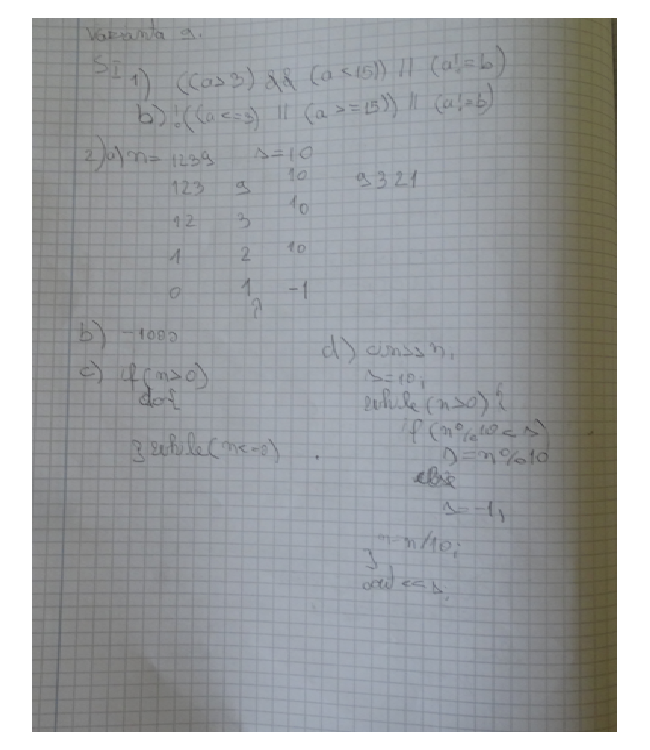 Varianta 9.
SI 1) ((a>3) && (a<15)) || (a!=b)
b) !((a<=3) || (a>=15)) || (a!=b)
2) a) n= 1239 s=10
123 9 10 9321
12 3 10
1 2 10
0 1 -1
b)
d) cin>>n;
c) if(n>0)
s=10;
do{
while(n>0){
if(n%10<s)
}while(n<=0)
s=n%10
else
s=-1;
n=n/10;
}
cout<<s;